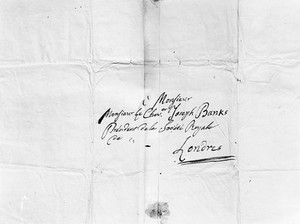 A Monsieur
Monsieur Le Chev.er Joseph Banks
Président de la Société Royale
&c.
Londres